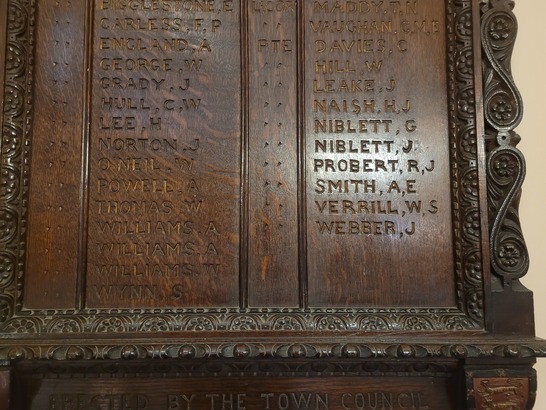 BIGGLESTONE, E
CARLESS, F, P
ENGLAND, A
GEORGE, W
GRADY, J
HULL, C, W
LEE, H
NORTON, J
O'NEIL, W
POWELL, A
THOMAS, W
WILLIAMS, A
WILLIAMS, A
WILLIAMS, W
WYNN, S
L.COR MADDY, T, H
" VAUGHAN, G, M, E
PTE DAVIES, C
" HILL, W
" LEAKE, J
" NAISH, H, J
" NIBLETT, G
" NIBLETT, J
" PROBERT, R, J
" SMITH, A, E
" VERRILL, W, S
" WEBBER, J
ERECTED BY THE TOWN COUNCIL